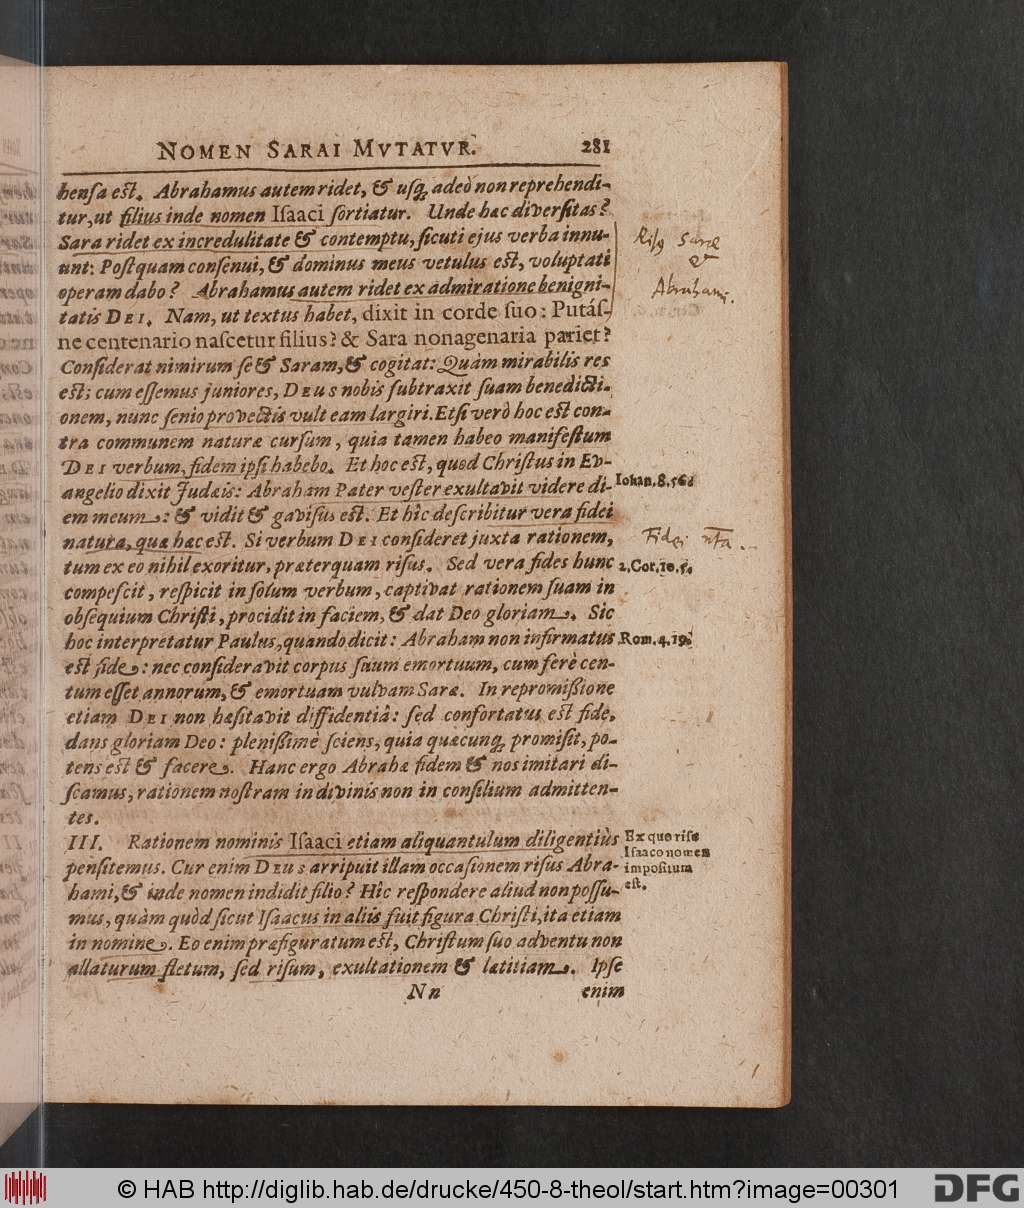 NOMEN SARAI MVTATVR. 281
hensa est. Abrahamus autem ridet, & usq; adeò non reprehendi-
tur, ut filius inde nomen Isaaci sortiatur. Unde hæc diversitas?
Sara ridet ex incredulitate & contemptu, sicuti ejus verba innu-
unt: Postquam consenui, & dominus meus vetulus est, voluptati
operam dabo? Abrahamus autem ridet ex admiratione benigni-
tatis DEI. Nam, ut textus habet, dixit in corde suo: Putás-
ne centenario nascetur filius? & Sara nonagenaria pariet?
Considerat nimirum se & Saram, & cogitat: Quàm mirabilis res
est; cum essemus juniores, DEUS nobis subtraxit suam benedicti-
onem, nunc senio provectis vult eam largiri. Etsi verò hoc est con-
tra communem naturæ cursum, quia tamen habeo manifestum
DEI verbum, fidem ipsi habebo. Et hoc est, quod Christus in Ev-
angelio dixit Judæis: Abraham Pater vester exultavit videre di-
em meum: & vidit & gavisus est. Et hîc describitur vera fidei
natura, quæ hæc est. Si verbum DEI consideret juxta rationem,
tum ex eo nihil exoritur, præterquam risus. Sed vera fides hunc
compescit, respicit in solum verbum, captivat rationem suam in
obsequium Christi, procidit in faciem, & dat Deo gloriam. Sic
hoc interpretatur Paulus, quando dicit: Abraham non infirmatus
est fide: nec consideravit corpus suum emortuum, cum ferè cen-
tum esset annorum, & emortuam vulvam Saræ. In repromißione
etiam DEI non hæsitavit diffidentiâ: sed confortatus est fide,
dans gloriam Deo: plenißimè sciens, quia quæcunq; promisit, po-
tens est & facere. Hanc ergo Abrahæ fidem & nos imitari di-
scamus, rationem nostram in divinis non in consilium admitten-
tes.
III. Rationem nominis Isaaci etiam aliquantulum diligentiùs
pensitemus. Cur enim DEUS arripuit illam occasionem risus Abra-
hami, & inde nomen indidit filio? Hîc respondere aliud non possu-
mus, quàm quòd sicut Isaacus in aliis fuit figura Christi, ita etiam
in nomine. Eo enim præfiguratum est, Christum suo adventu non
allaturum fletum, sed risum, exultationem & lætitiam. Ipse
Nn enim
Risq Saræ
&
Abrahami.
Iohan. 8. 56.
Fidei nta.
2. Cor. 10. 5.
Rom. 4. 19.
Ex quo rise
Isaaco nomen
impositum
est.
© HAB http://diglib.hab.de/drucke/450-8-theol/start.htm?image=00301
DFG